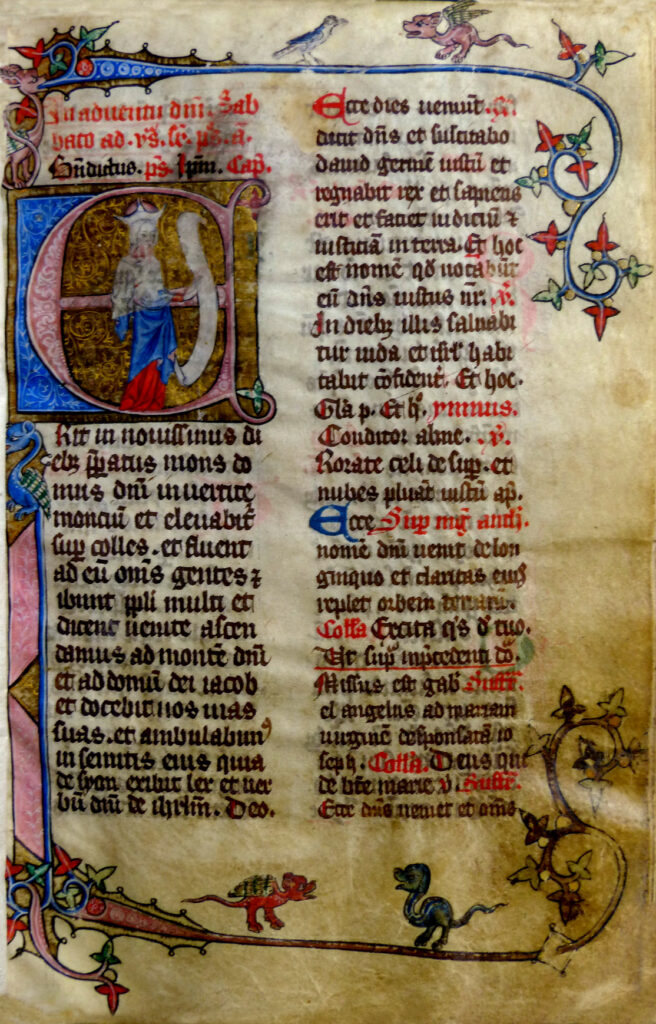 In adventu dni Sab
bato ad vs. sr. ps. a.
Bndictus. ps. Ipm. Cap.
Erit in novissimus di
ebz ppatus mons do
mus dni in vertice
monciu et elevabit
sup colles. et fluent
ad eu oms gentes ⁊
ibunt ppli multi et
dicent venite ascen
damus ad monte dni
et ad domu dei iacob
et docebit nos vias
suas. et ambulabun⁹
in semitis eius quia
de syon exibit lex et ver
bu dni de ihrlm. Deo.
Ecce dies veniut. 
dicit dns et suscitabo
david germe iustu et
regnabit rex et sapiens
erit et faciet iudiciu ⁊
iusticia in terra. Et hoc
est nome qd vocabut
eu dns iustus nr. v.
In diebz illis salvabi
tur iuda et isrl habi
tabit cofident. Et hoc.
Gla p. Et h. ymnus.
Conditor alme. v.
Rorate celi de sup. et
nubes pluat iustu ap.
Ecce Sup mg anth.
nome dni venit de lon
ginquo et claritas eius
replet orbem terraru.
Colla Excita qs d tuo.
Ut sup in precedenti do.
Missus est gab Suffr.
el angelus ad mariam
virgine desponsata io
seph. Colla. Deus qui
de bte marie v. Suffr.
Ecce dns veniet et oms